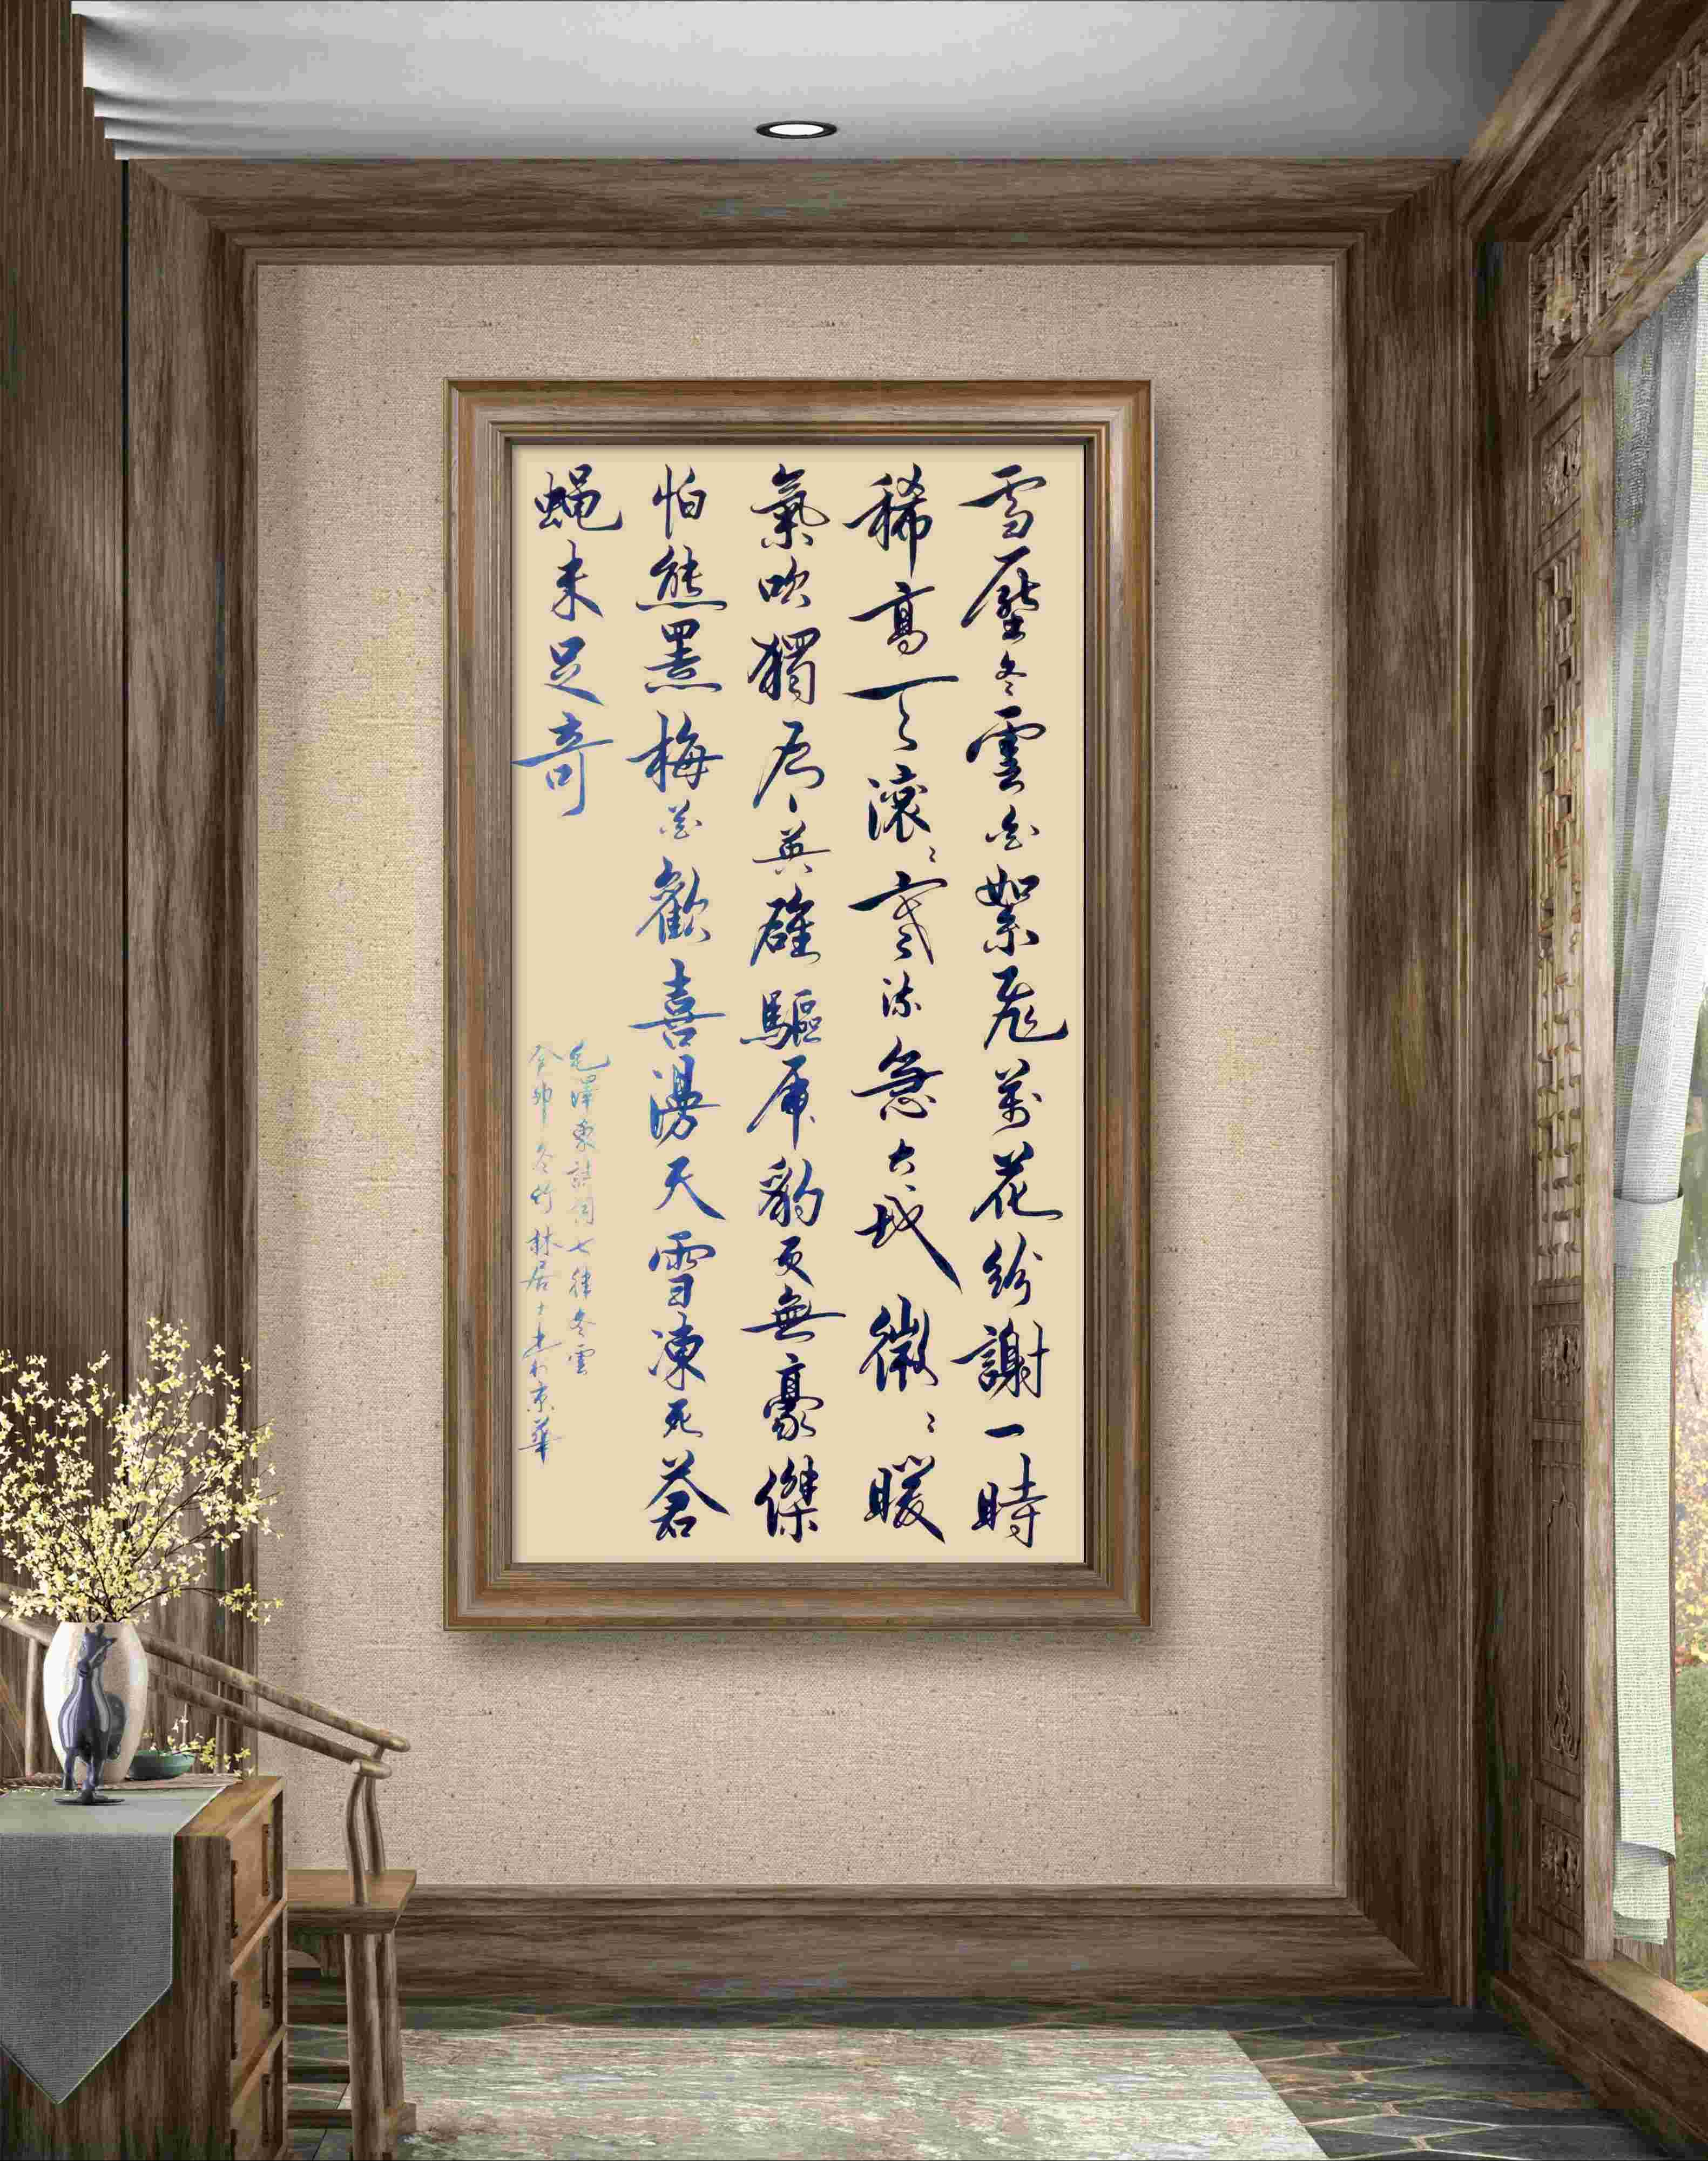 雪壓冬雲白絮飛萬花紛謝一時
稀高天滾〻寒流急大地微〻暖
氣吹獨有英雄驅虎豹更無豪傑
怕熊羆梅花歡喜漫天雪凍死蒼
蠅未足奇
毛澤東詩詞七律冬雲
癸卯冬竹林居士於京華